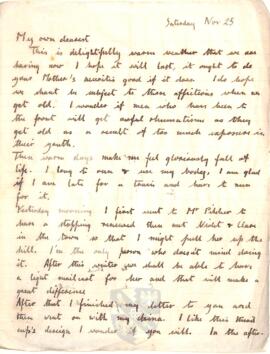 Saturday Nov 25
My own dearest
This is delightfully warm weather that we are
having now I hope it will last, it ought to do
your Mother's neuritis good if it does. I do hope
we shant be subject to those afflictions when we
get old. I wonder if men who have been to
the front will get awful rheumatism as they
get old as a result of too much exposure in
their youth.
These warm days make me feel gloriously full of
life. I long to run & use my body, I am glad
if I am late for a train and have to run
for it.
Yesterday morning I first went to Mr Pilcher to
have a stopping renewed then met Violet & Clare
in the town so that I might pull her up the
hill. I'm the only person who doesn't mind doing
it. After this winter we shall be able to have
a light mailcart for her and that will make a
great difference.
After that I finished my letter to you and
then went on with my china. I like this
cup's design I wonder if you will. In the after-